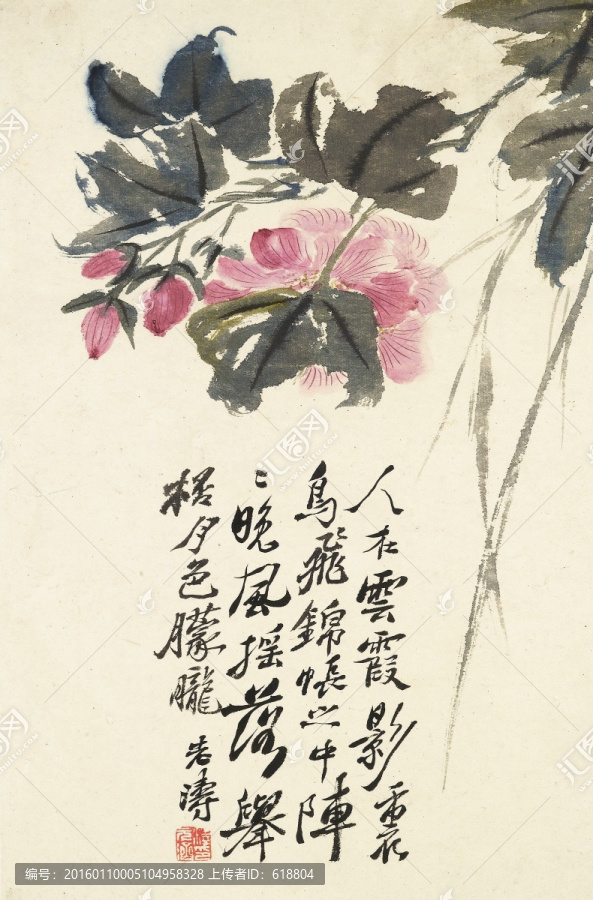 人在雲霞影裏
鳥飛錦帳之中陣
〻晚風搖落舉
桮夕色朦朧 老濤
汇图网
编号：20160110005104958328 上传者ID：618804